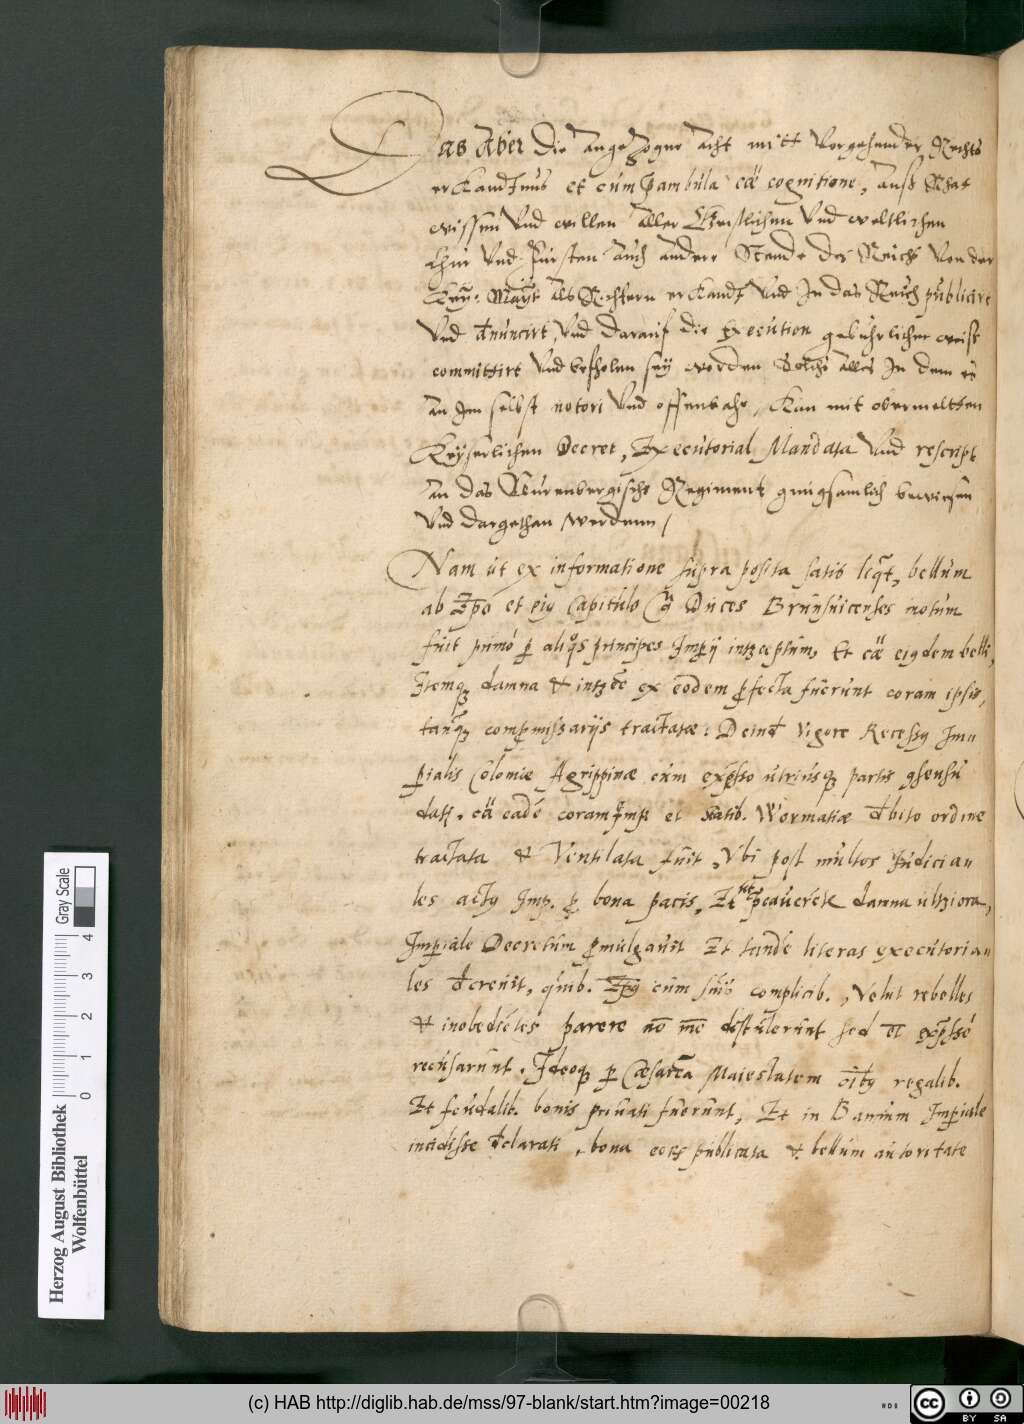 Das aber die angezogne acht mitt vorgehender Rechts
erkandtnus et cum præambula cā cognitione, auß Rhat
wissen vnd willen aller Geistlichen vnd weltlichen
Chur vnd Fürsten auch andere Stende des Reichs von der
Key: Mayt als Richtern erkandt vnd in das Reich publicirt
vnd dnuncirt, vnd darauf die Execution gebuhrlicher weiß
committirt vnd befholen sey worden Solchs alles in dem es
an im selbst notori vnd offenbahr, kan mit obermelthen
Keyserlichen Decret, Executorial Mandata vnd rescript
an das Nurenbergischs Regiment gnugsamlich bewiesen
vnd dargethan werdenn /
Nam ut ex informatione supra posita satis liqt, bellum
ab Epo et eiq Capitulo Duces Brunsuicenses motum
fuit primo p aliqs principes Impij intceptum, Et cā eiqdem belli,
Itemq damna & intée ex eodem pfecta fuerunt coram ipsis,
tanq compmissarijs tractatæ: Deind vigore Recessq Im-
pialis Coloniæ Agrippinæ cum expsso utriusq partis gsensu
dati, cā eadē coram Imp et statib. Wormatiæ dbito ordine
tractata & Ventilata fuit, Vbi post multos Iudician
les actq Imp. p bona pacis, Et ut pcaueret damna ultiora,
Impiale Decretum pmulgauit Et tandē literas executorian
les dcreuit, quib. Epq cum suis complicib., velut rebelles
& inobedietes parere nō mō distulerunt sed et expssé
recusarunt. Ideoq p Cæsarea Maiestatem oibq regalib.
Et feudalib. bonis priuati fuerunt, Et in Bannum Impiale
incidisse dclarati, bona eor publicata & bellum autoritate
Herzog August Bibliothek
Wolfenbüttel
Gray Scale
0 1 2 3 4
(c) HAB http://diglib.hab.de/mss/97-blank/start.htm?image=00218
cc BY SA